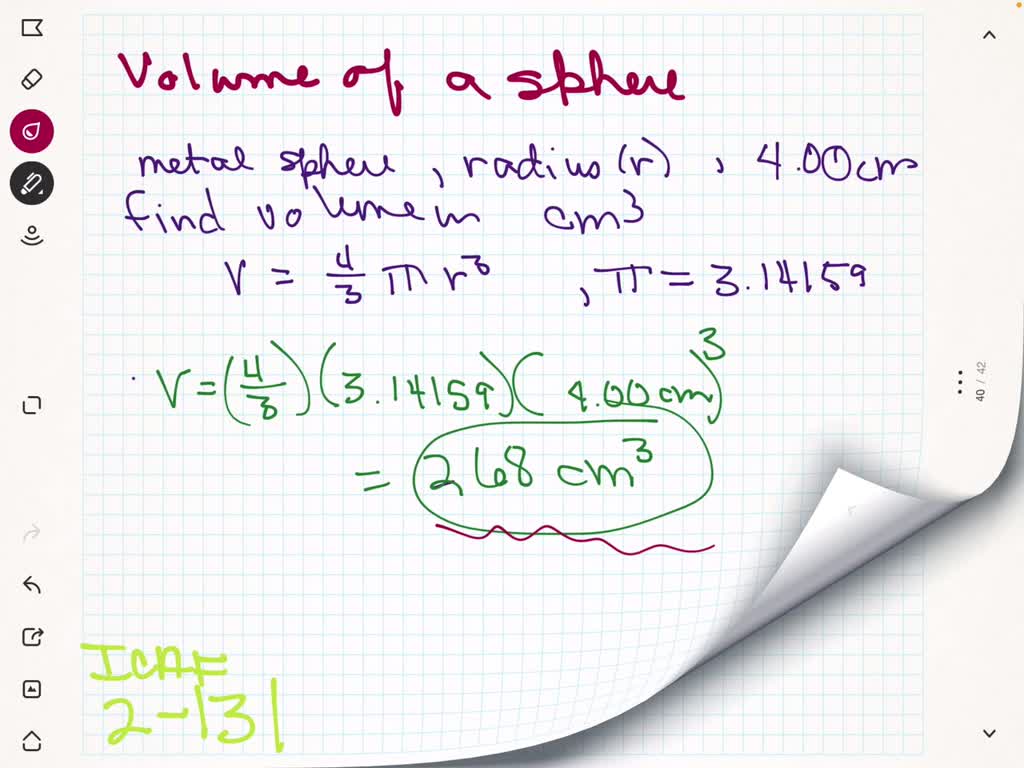 Volume of a sphere
metal sphere, radius (r), 4.00 cm
find volume in cm³
V = 4/3 π r³ , π = 3.14159
V = (4/3)(3.14159)(4.00 cm)³
= 268 cm³
ICAF
2-131
40 / 42